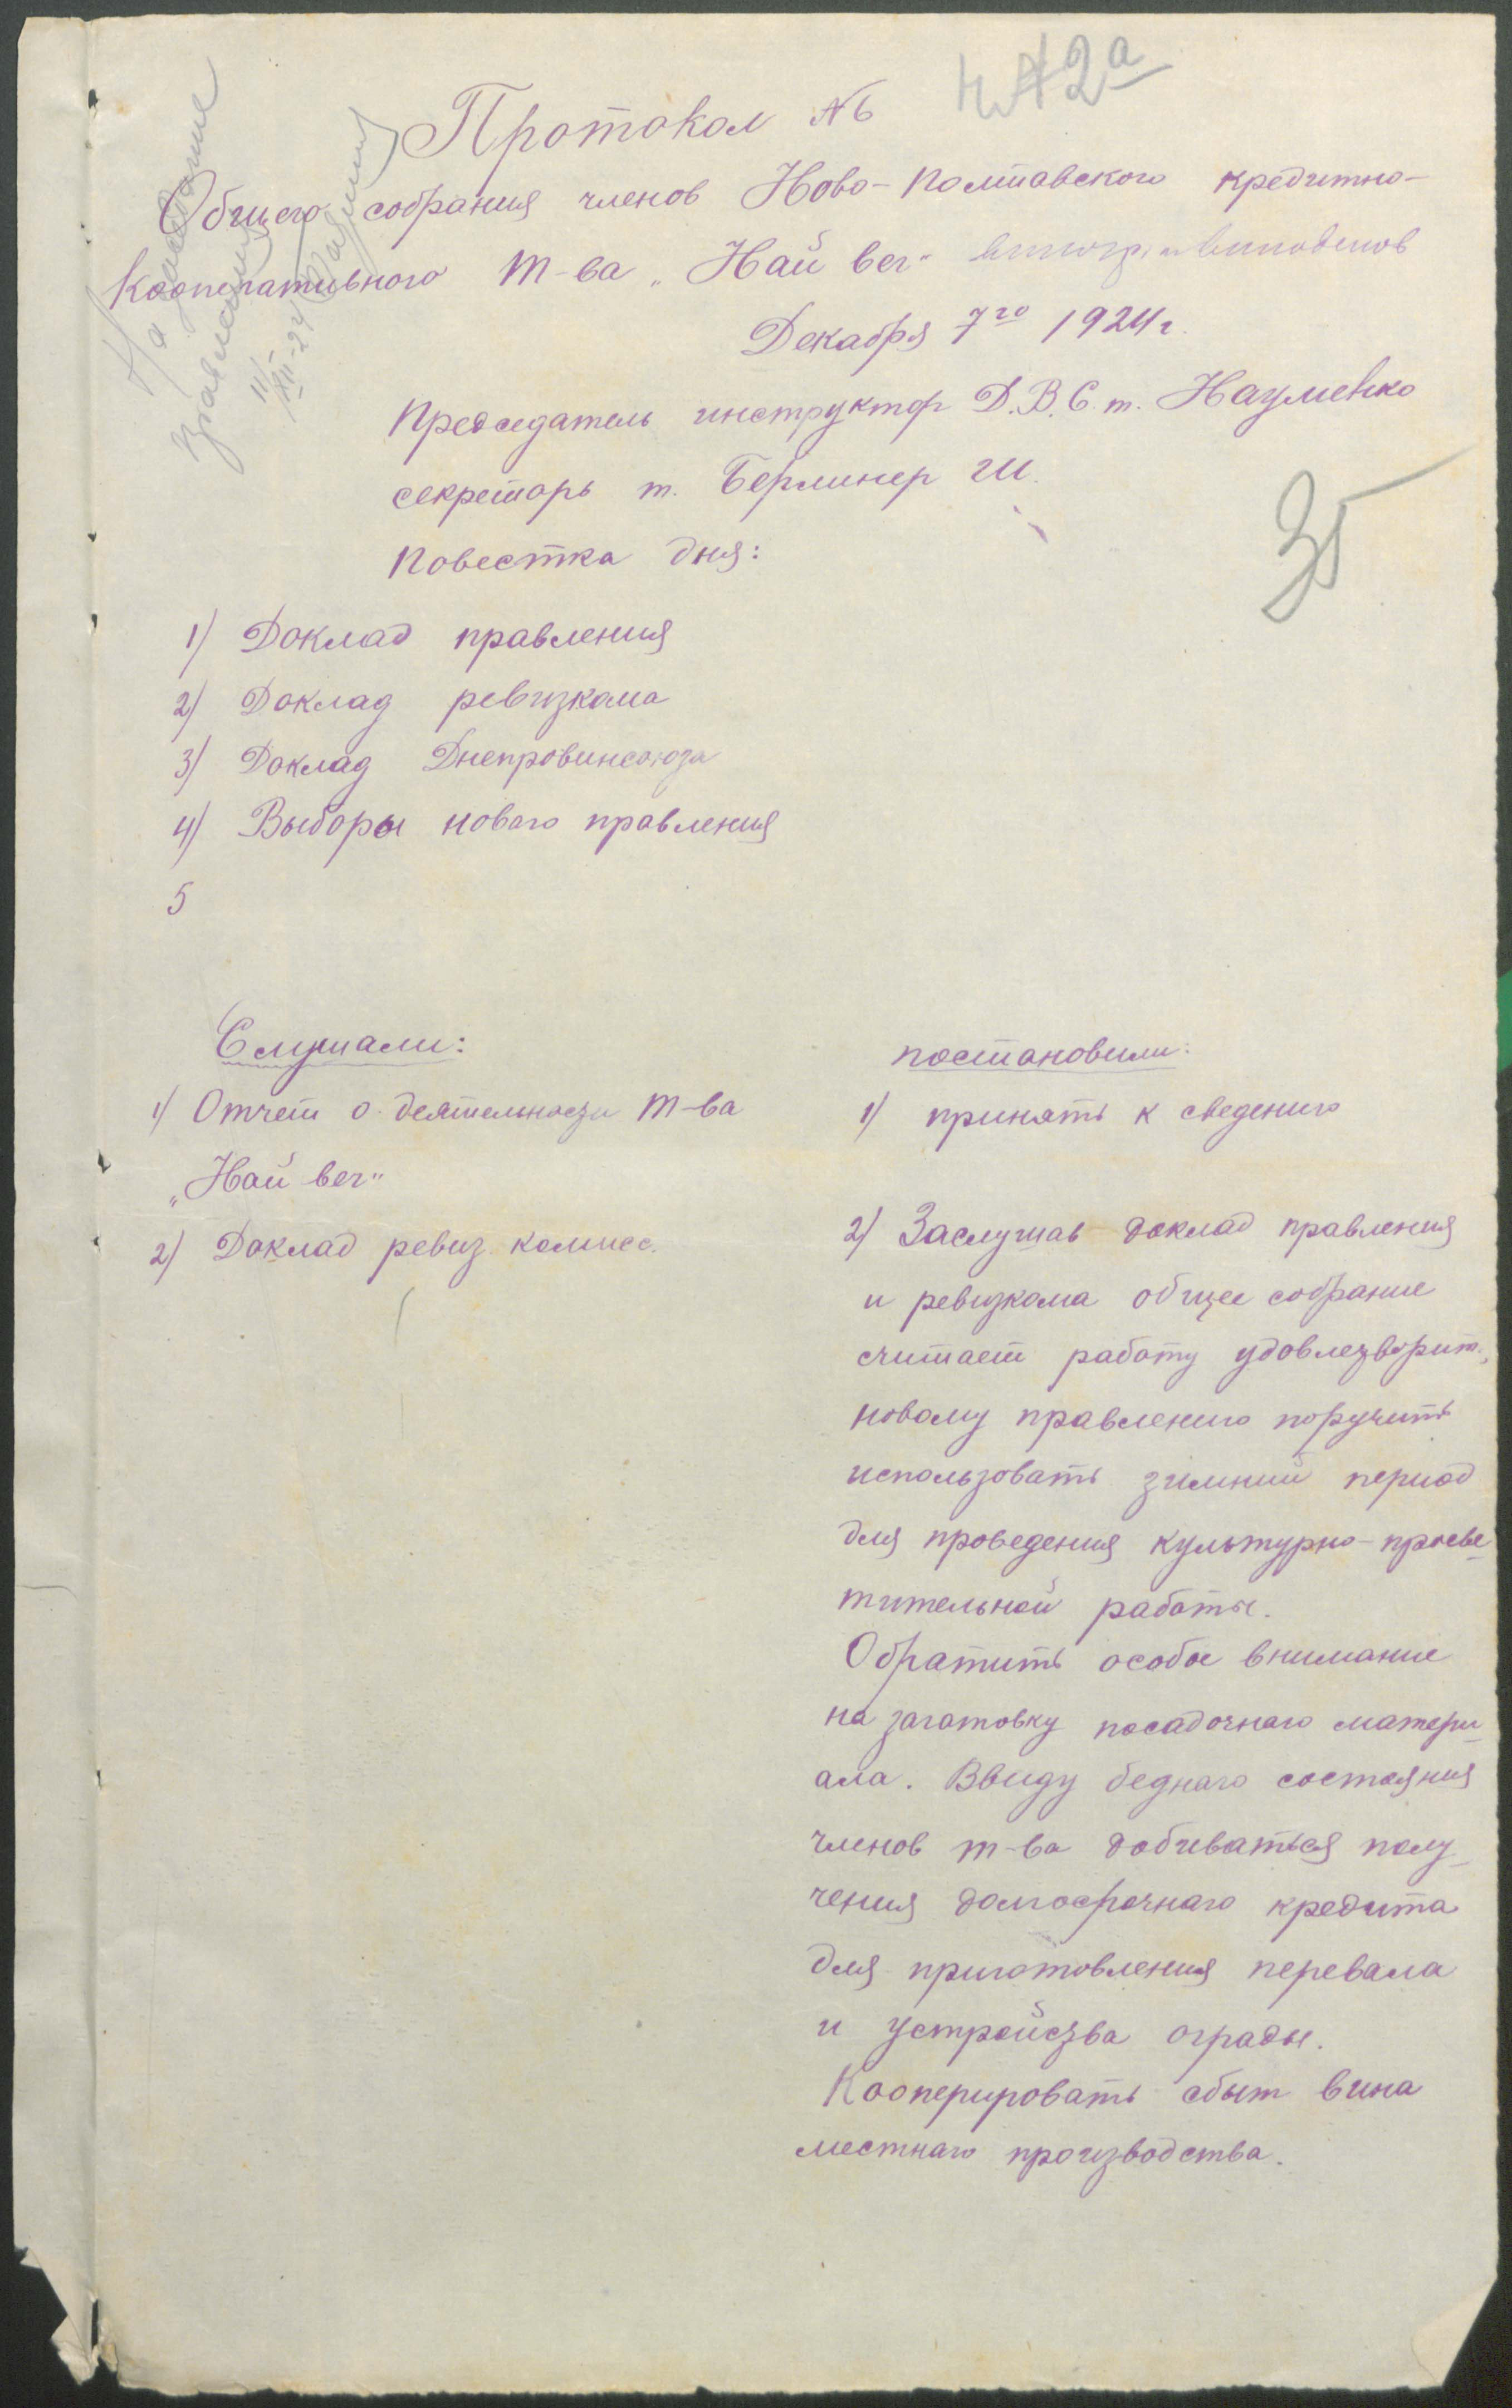 Протокол №6
Общего собрания членов Ново-Полтавского кредитно-
кооперативного т-ва „Най вег"
Декабря 7го 1924 г.
Председатель инструктор Д.В.С. т. Науменко
секреторь т. Берлинер Ш.
Повестка дня:
1) Доклад правления
2) Доклад ревизкома
3) Доклад Днепровинсоюза
4) Выборы новаго правления
5
Слушали:
1) Отчет о деятельности т-ва
„Най вег"
2) Доклад ревиз. комисс.
постановили:
1) принять к сведению
2) Заслушав доклад правления
и ревизкома общее собрание
считает работу удовлетворит.,
новому правлению поручить
использовать зимний период
для проведения культурно-просве-
тительной работы.
Обратить особое внимание
на заготовку посадочнаго матери-
ала. Ввиду беднаго состояния
членов т-ва добиваться полу-
чения долгосрочнаго кредита
для приготовления перевала
и устройства ограды.
Кооперировать сбыт вина
местнаго производства.